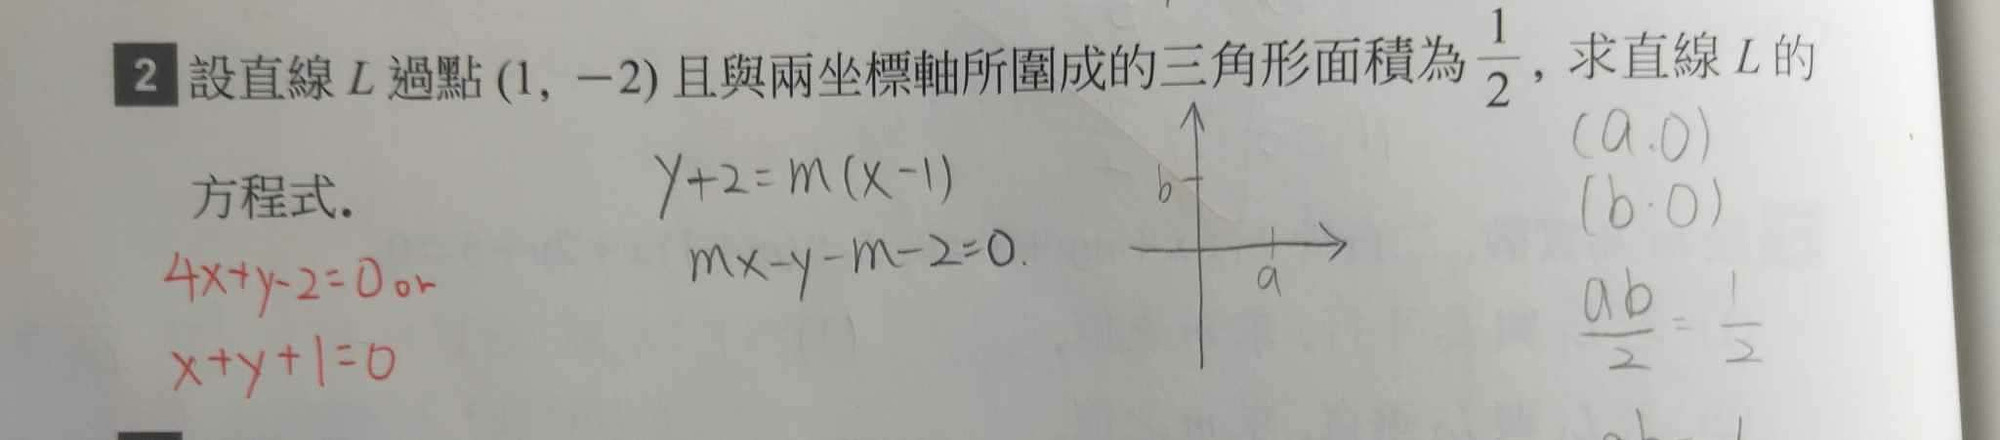 2 設直線 L 過點 (1, −2) 且與兩坐標軸所圍成的三角形面積為 1/2, 求直線 L 的
方程式.
y+2=m(x-1)
mx-y-m-2=0.
b
a
(a.0)
(b.0)
ab/2 = 1/2
4x+y-2=0 or
x+y+1=0